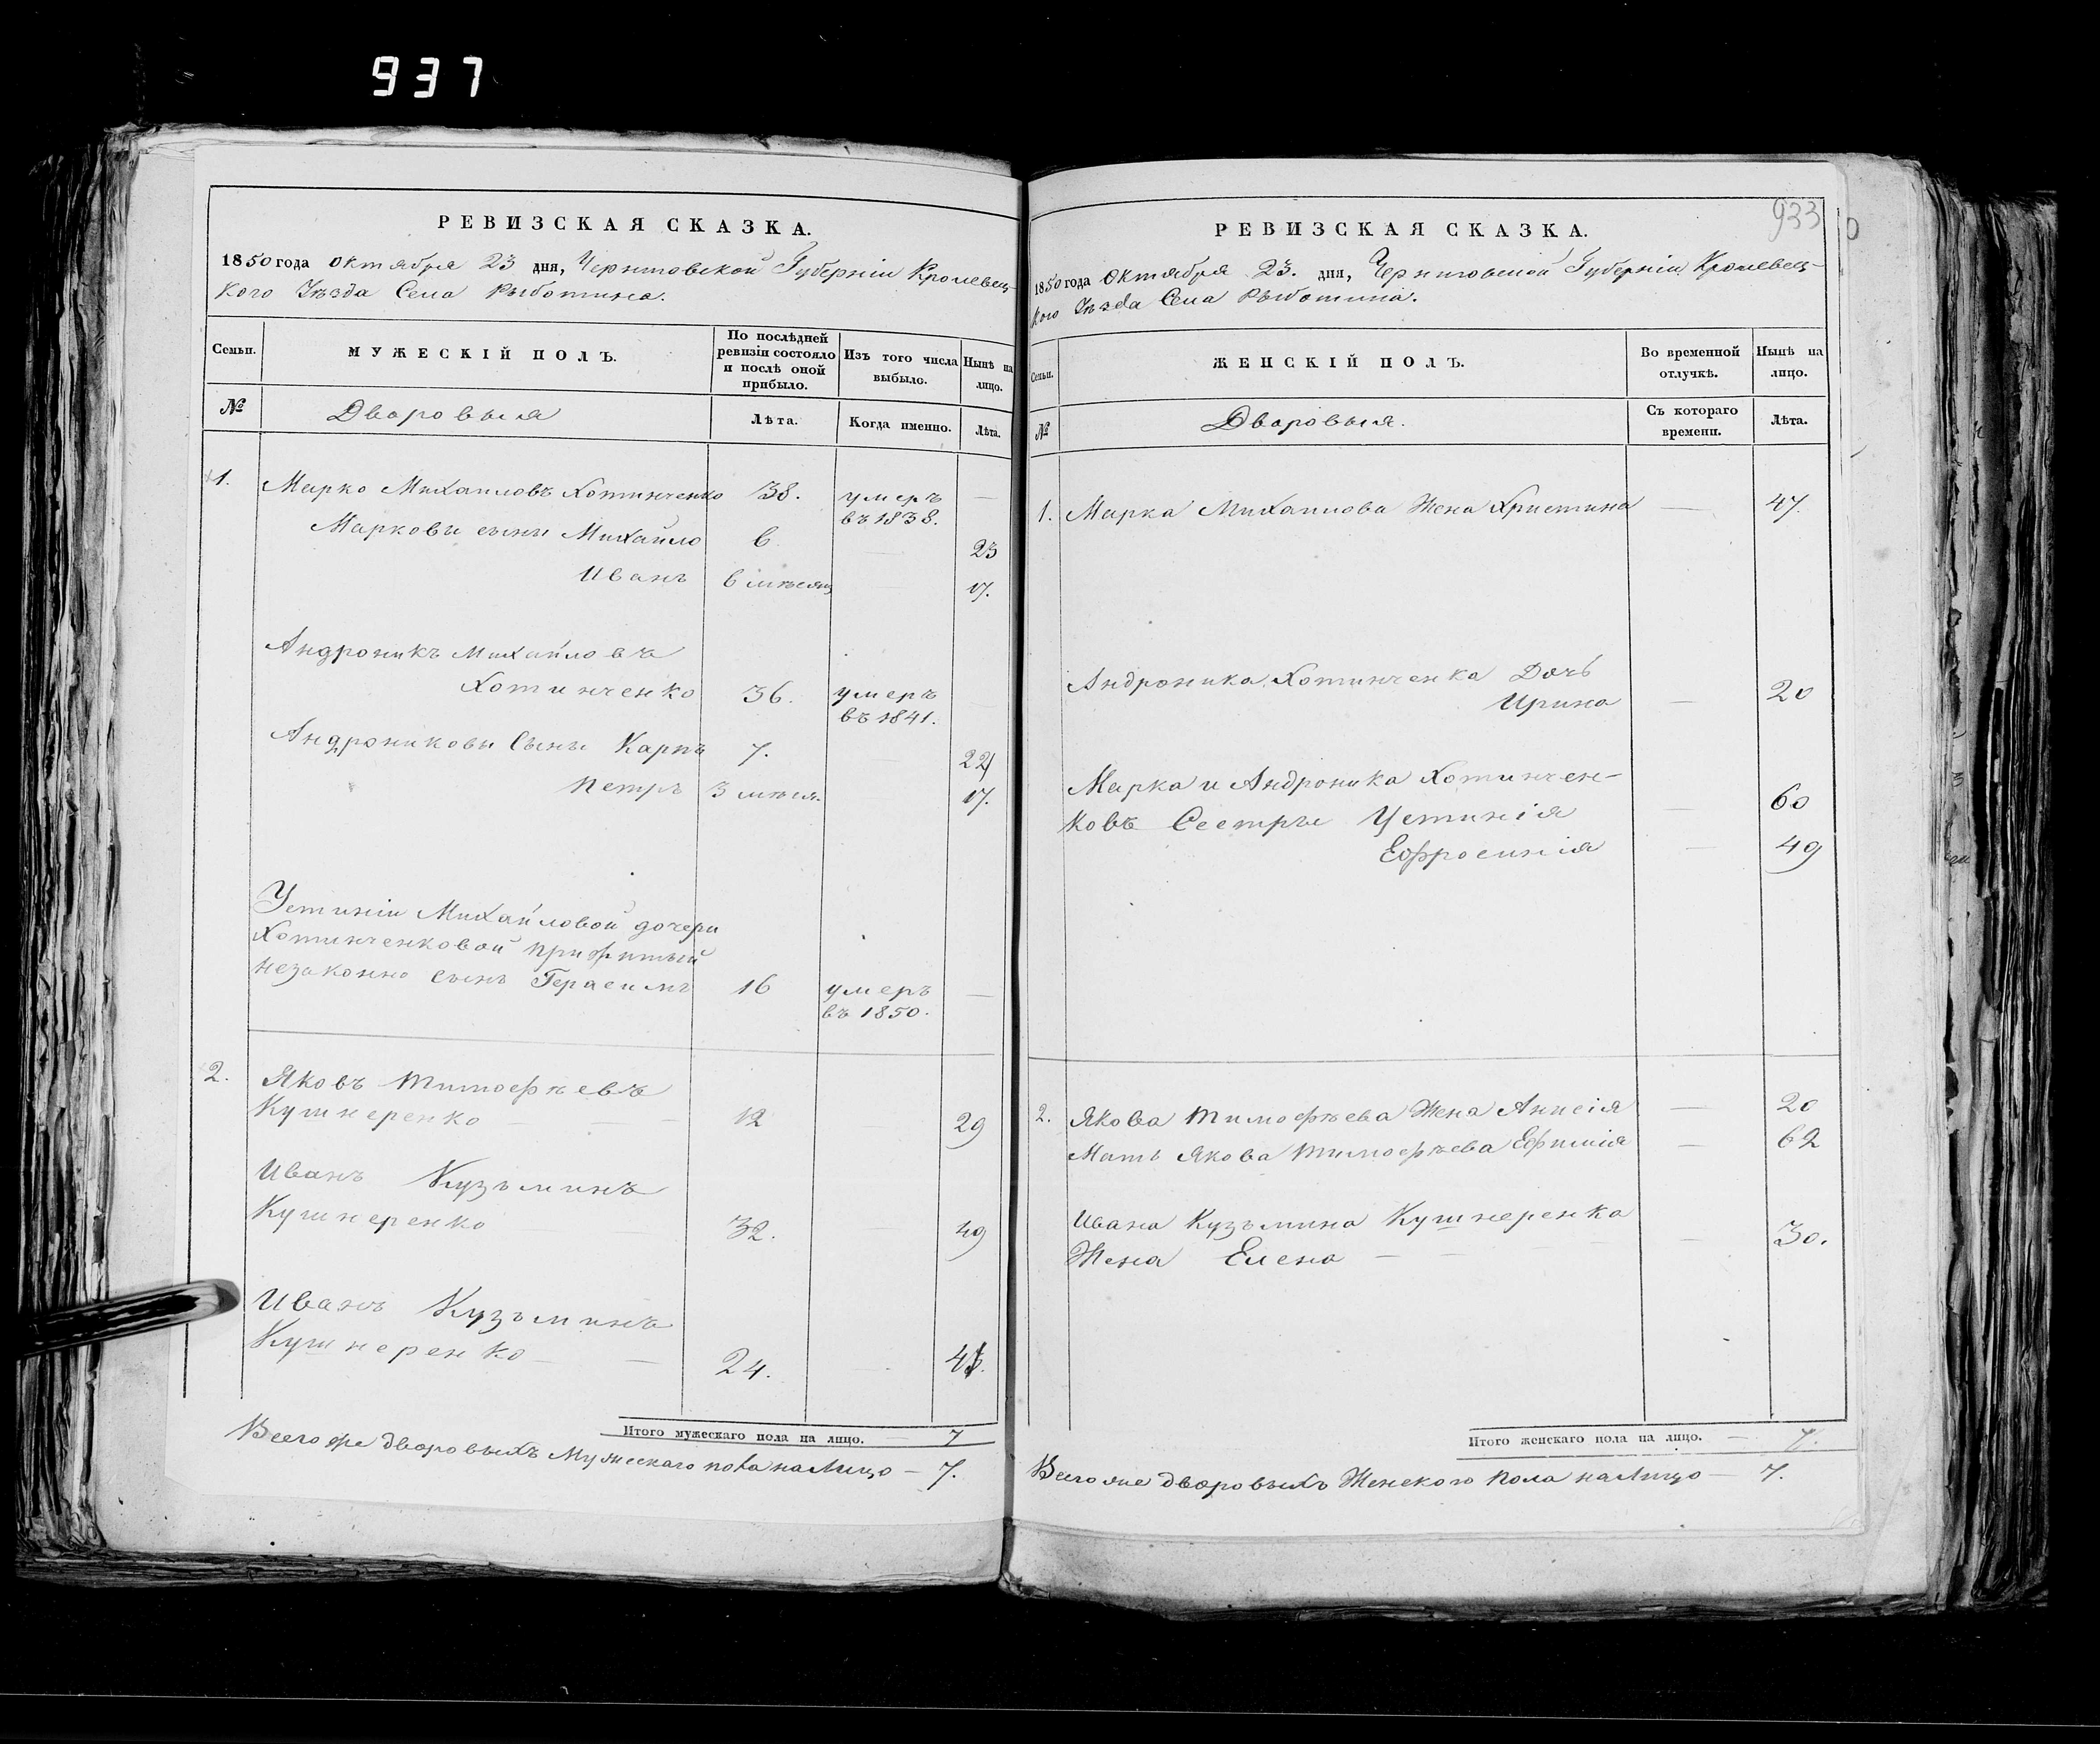 937
РЕВИЗСКАЯ СКАЗКА.
1850 года октября 23 дня, Черниговской Губерніи Кролевец-
кого Уѣзда Села Рыботина.
Семьи.
МУЖЕСКІЙ ПОЛЪ.
По послѣдней ревизіи состояло и послѣ оной прибыло.
Изъ того числа выбыло.
Нынѣ на лицо.
№
Дворовыя
Лѣта.
Когда именно.
Лѣта.
1. Марко Михаиловъ Хотинченко 38. умеръ —
въ 1838.
Марковы сыны Михайло 6 — 23
Иванъ 6 мѣсяц — 17.
Андроникъ Михайловъ
Хотинченко 36. умеръ —
въ 1841.
Андрониковы Сыны Карпъ 7. 22
Петръ 3 мѣся. 17.
Устиніи Михайловой дочери
Хотинченковой прижитый
незаконно сынъ Герасимъ 16 умеръ —
въ 1850.
2. Яковъ Тимофѣевъ
Кушнеренко — — — 12 29
Иванъ Кузьминъ
Кушнеренко — — 32. — 49
Иванъ Кузьминъ
Кушнеренко — — 24. — 41.
Итого мужескаго пола на лицо. — 7
Всего же дворовыхъ Мужескаго пола на Лицо — 7.
933
РЕВИЗСКАЯ СКАЗКА.
1850 года Октября 23. дня, Черниговской Губерніи Кролевец-
кого Уѣзда Села Рыботина.
Семьи.
ЖЕНСКІЙ ПОЛЪ.
Во временной отлучкѣ.
Нынѣ на лицо.
№
Дворовыя.
Съ котораго времени.
Лѣта.
1. Марка Михаилова Жена Христина — 47.
Андроника Хотинченка Дочь
Ирина — 20
Марка и Андроника Хотинчен-
ковъ Сестры Устинія — 60
Ефросинія — 49
2. Якова Тимофѣева Жена Анисія — 20
Мать Якова Тимофѣева Ефимія — 62
Ивана Кузьмина Кушнеренка
Жена Елена — — — 30.
Итого женскаго пола на лицо. — 7.
Всего же дворовыхъ Женского пола на Лицо — 7.